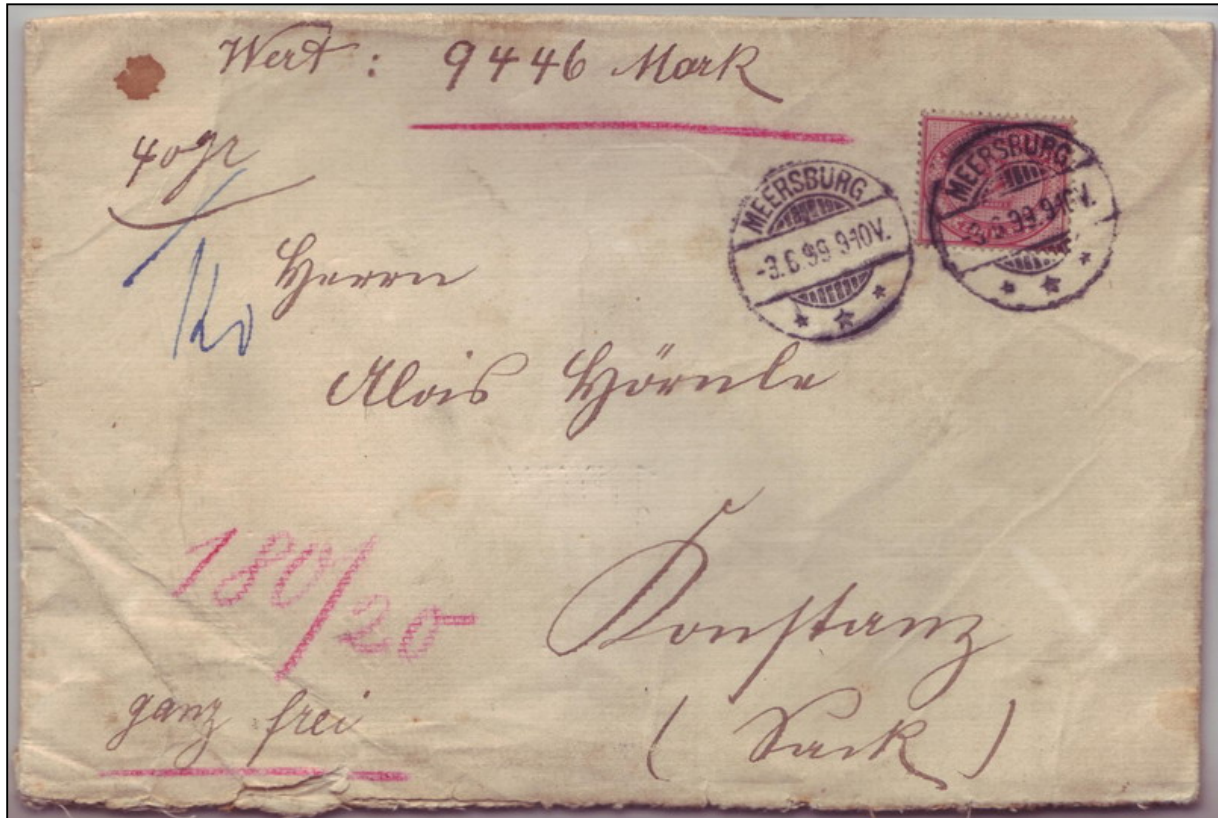 Wert : 9446 Mark
40gr
MEERSBURG
-3.6.99.9-10V.
MEERSBURG
-3.6.99.9-10V.
Herrn
Alois Hörnle
180/20
Konstanz
ganz frei
( Sack )